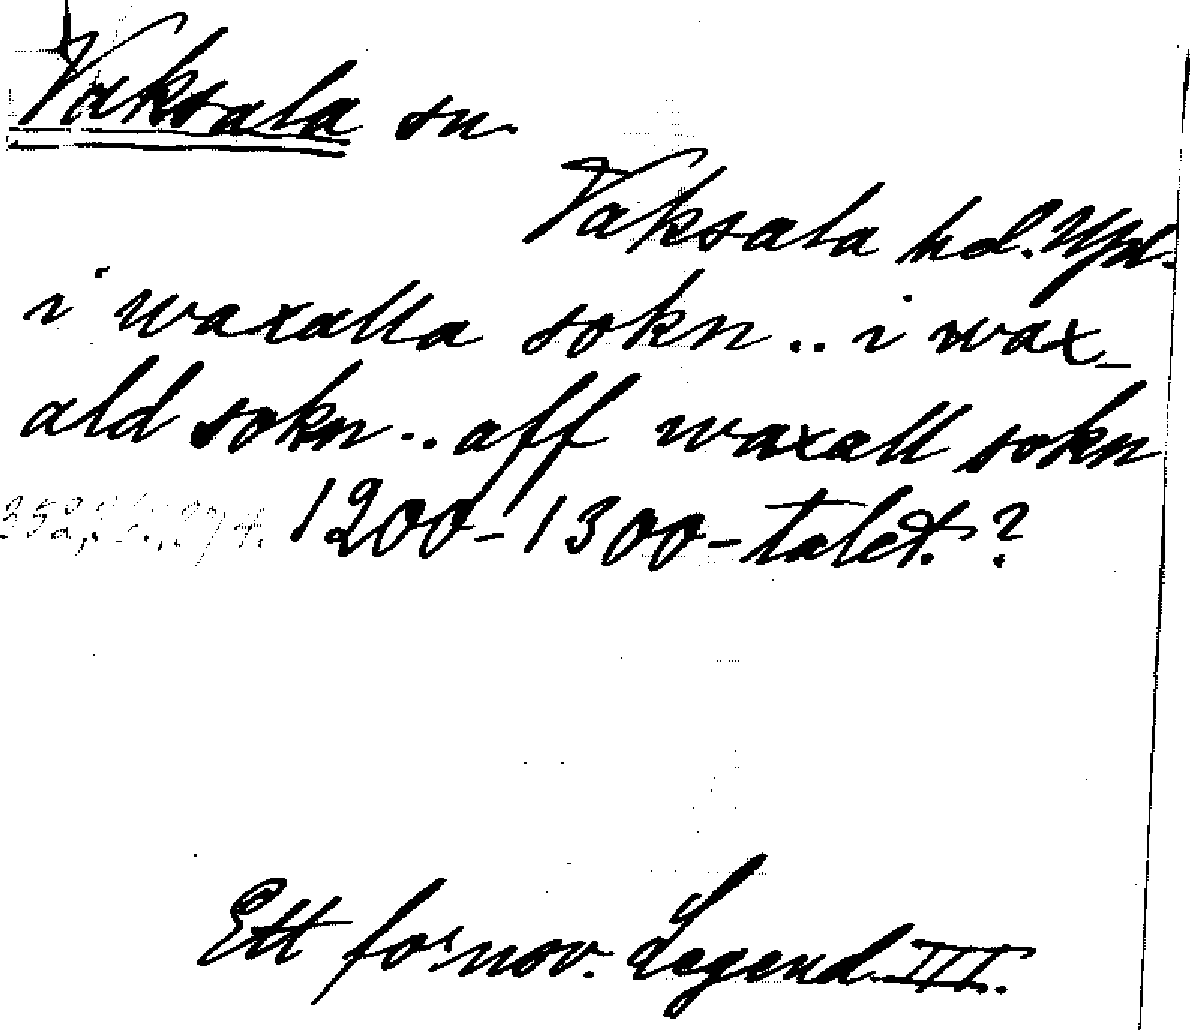 Vaksala sn.
Vaksala hd. Upl.
i waxalla sokn .. i wax_
ald sokn .. aff waxall sokn
1200-1300-talet.?
Ett fornsv. Legend. III.